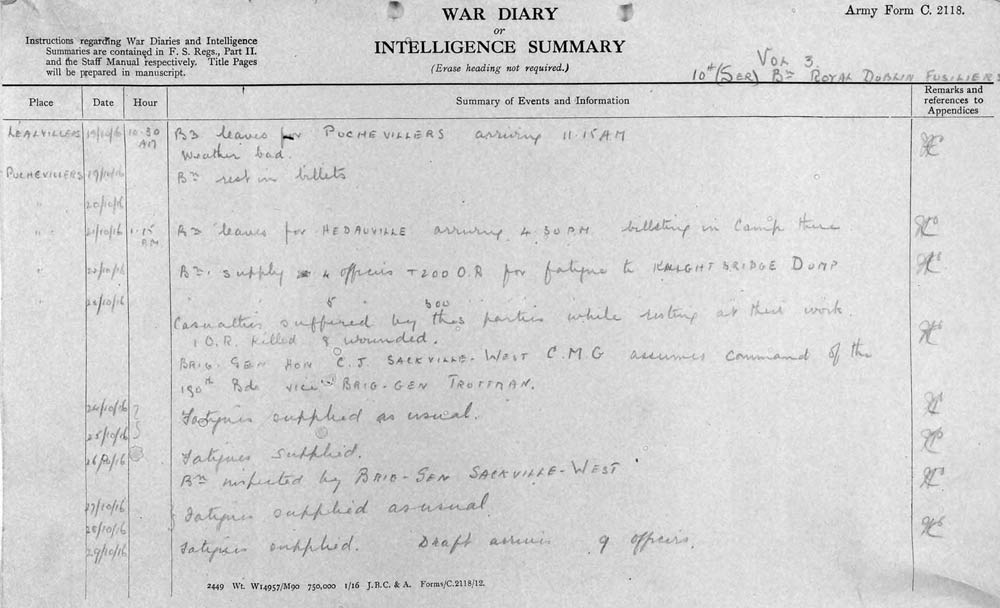 WAR DIARY
Army Form C. 2118.
or
INTELLIGENCE SUMMARY
(Erase heading not required.)
Instructions regarding War Diaries and Intelligence
Summaries are contained in F. S. Regs., Part II.
and the Staff Manual respectively. Title Pages
will be prepared in manuscript.
VOL 3
10th (SER) Bn ROYAL DUBLIN FUSILIERS
Place Date Hour Summary of Events and Information Remarks and references to Appendices
LEALVILLERS 19/10/16 10.30 AM leaves for PUCHEVILLERS arriving 11.15 AM
Weather bad.
PUCHEVILLERS 19/10/16 Bn rest in billets
" " 20/10/16
" " 21/10/16 1.15 PM leaves for HEDAUVILLE arriving 4.30 PM billeting in Camp there
" Bn supply 4 officers + 200 O.R for fatigue to KNIGHTBRIDGE DUMP
" 5 " 300 "
Casualties suffered by parties while resting at their work.
1 O.R. killed 8 wounded.
BRIG-GEN HON C.J. SACKVILLE-WEST C.M.G assumes command of the
190th Bde vice BRIG-GEN TROTMAN.
24/10/16 Fatigues supplied as usual.
25/10/16
26/10/16 Fatigues supplied.
Bn inspected by BRIG-GEN SACKVILLE-WEST
27/10/16 Fatigues supplied as usual
28/10/16
29/10/16 Fatigues supplied. Draft arrives 9 officers.
2449 Wt. W14957/M90 750,000 1/16 J.B.C. & A. Forms/C.2118/12.